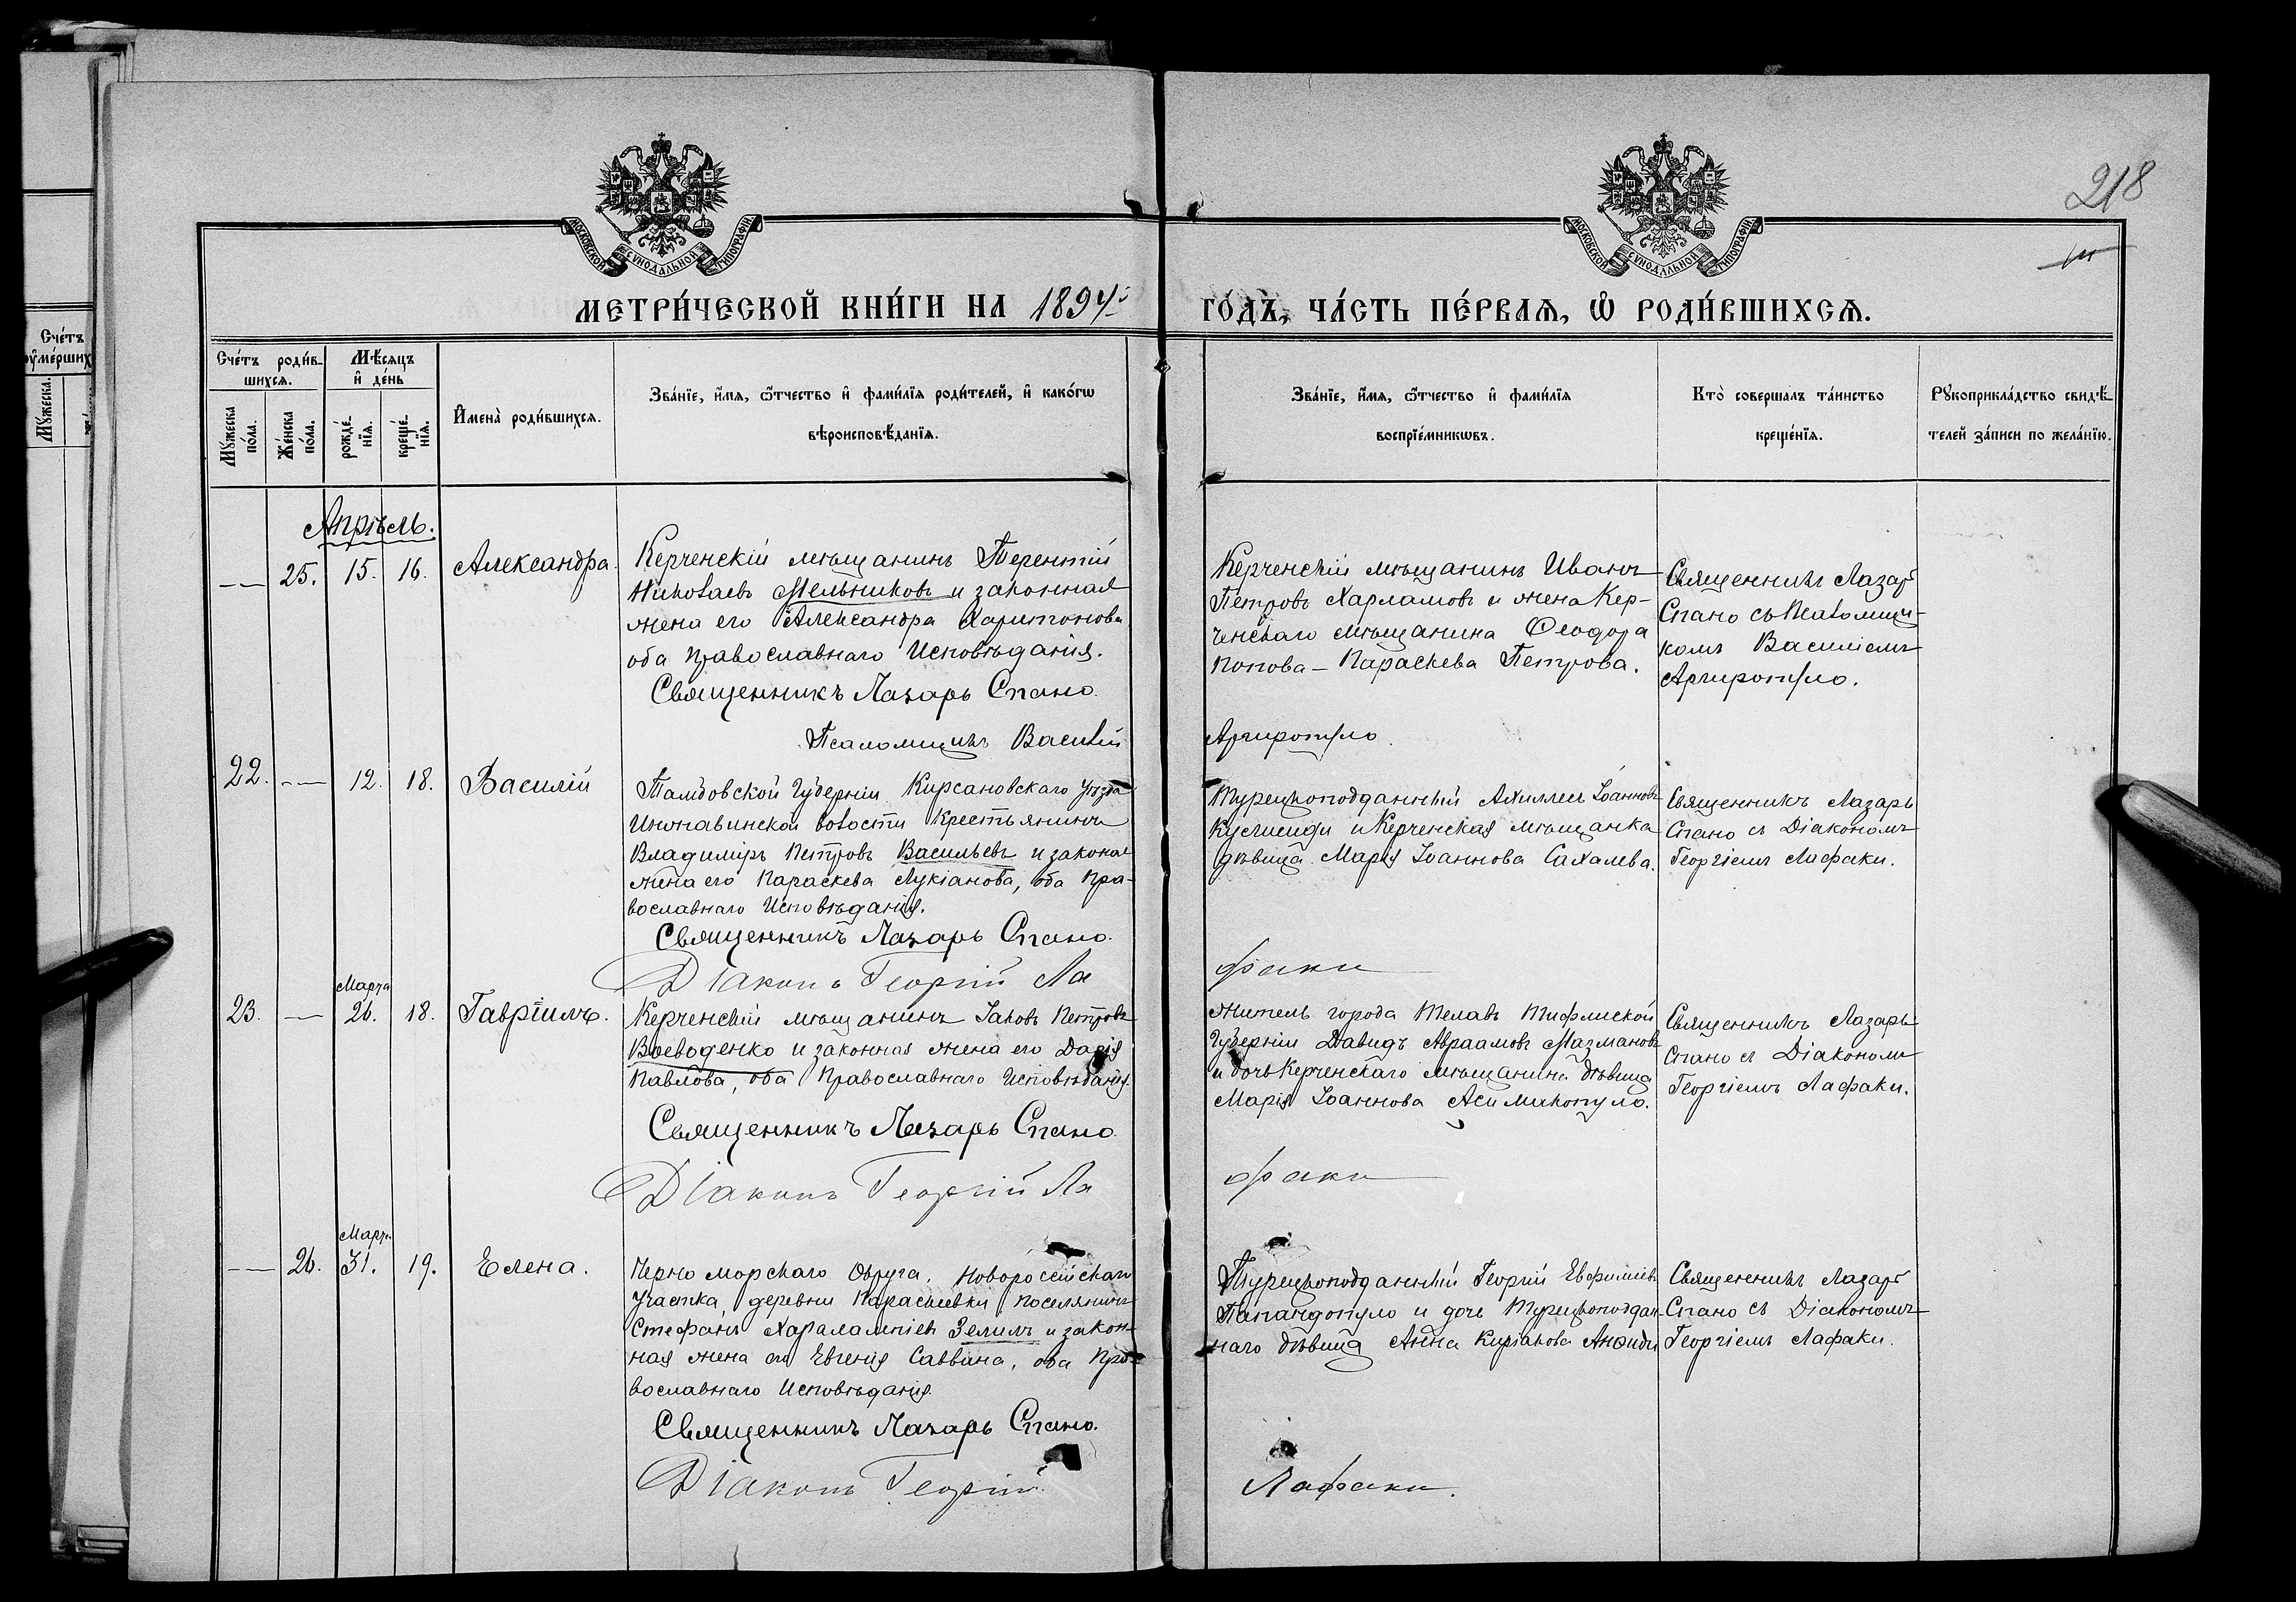 218
МОСКОВСКОЙ СѴНОДАЛЬНОЙ ТИПОГРАФІИ
МОСКОВСКОЙ СѴНОДАЛЬНОЙ ТИПОГРАФІИ
МЕТРИ́ЧЕСКОЙ КНИ́ГИ НА 1894й
ГО́ДЪ, ЧА́СТЬ ПЕ́РВАѦ, Ѡ҆ РОДИ́ВШИХСѦ.
Сче́тъ
оу҆ме́рших
Мꙋ́жеска.
Сче́тъ роди́в-
шихсѧ.
Мꙋ́жеска по́ла.
Же́нска по́ла.
Мѣ́сѧцъ и҆ де́нь
рожде́-нїѧ.
креще́-нїѧ.
И҆мена̀ роди́вшихсѧ.
Зва́нїе, и҆́мѧ, ѻ҆́тчество и҆ фами́лїѧ роди́телей, и҆ како́гѡ
вѣроисповѣ́данїѧ.
Зва́нїе, и҆́мѧ, ѻ҆́тчество и҆ фами́лїѧ
воспрїе́мникѡвъ.
Кто̀ соверша́лъ та́инство
креще́нїѧ.
Рꙋкоприкла́дство свидѣ́-
телей за́писи по жела́нїю.
Апрѣль.
25. 15. 16. Александра.
Керченскій мѣщанинъ Терентій
Николаевъ Мельниковъ и законная
жена его Александра Харитонова
оба православнаго Исповѣданія.
Священникъ Лазарь Спано.
Псаломщикъ Василій
Керченскій мѣщанинъ Иванъ
Петровъ Харламовъ и жена Кер-
ченскаго мѣщанина Ѳеодора
Попова – Параскева Петрова.
Аргиропуло.
Священникъ Лазарь
Спано съ Псаломщи-
комъ Василіемъ
Аргиропуло.
22. 12. 18. Василій
Тамбовской Губерніи Кирсановскаго Уѣзда
волости Крестьянинъ
Владиміръ Петровъ Васильевъ и законая
жена его Параскева Лукіанова, оба Пра-
вославнаго Исповѣданія.
Священникъ Лазарь Спано.
Діаконъ Георгій Ла
Турецкоподданный Ахиллей Іоанновъ
и Керченская мѣщанка
дѣвица Марія Іоаннова Сахалева.
факи
Священникъ Лазарь
Спано съ Діакономъ
Георгіемъ Лафаки.
23. Марта 26. 18. Гавріилъ.
Керченскій мѣщанинъ Іаковъ Петровъ
Воеводенко и законная жена его Дарія
Павлова, оба Православнаго Исповѣданія.
Священникъ Лазарь Спано.
Діаконъ Георгій Ла
Житель города Телавъ Тифлиской
Губерніи Давидъ Авраамовъ Мазмановъ
и дочь Керченскаго мѣщанина дѣвица
Марія Іоаннова Асимакопуло.
факи
Священникъ Лазарь
Спано съ Діакономъ
Георгіемъ Лафаки.
26. Марта 31. 19. Елена.
Черноморскаго Округа, Новоросійскаго
Участка, деревни поселянинъ
Стефанъ Харалампіевъ Зелилъ и закон-
ная жена его Евгенія Саввина, оба Пра-
вославнаго Исповѣданія.
Священникъ Лазарь Спано.
Діаконъ Георгій
Турецкоподданный Георгій Евфиміевъ
Папандопуло и дочь Турецкоподдан-
наго дѣвица Анна Киріакова
Лафаки.
Священникъ Лазарь
Спано съ Діакономъ
Георгіемъ Лафаки.